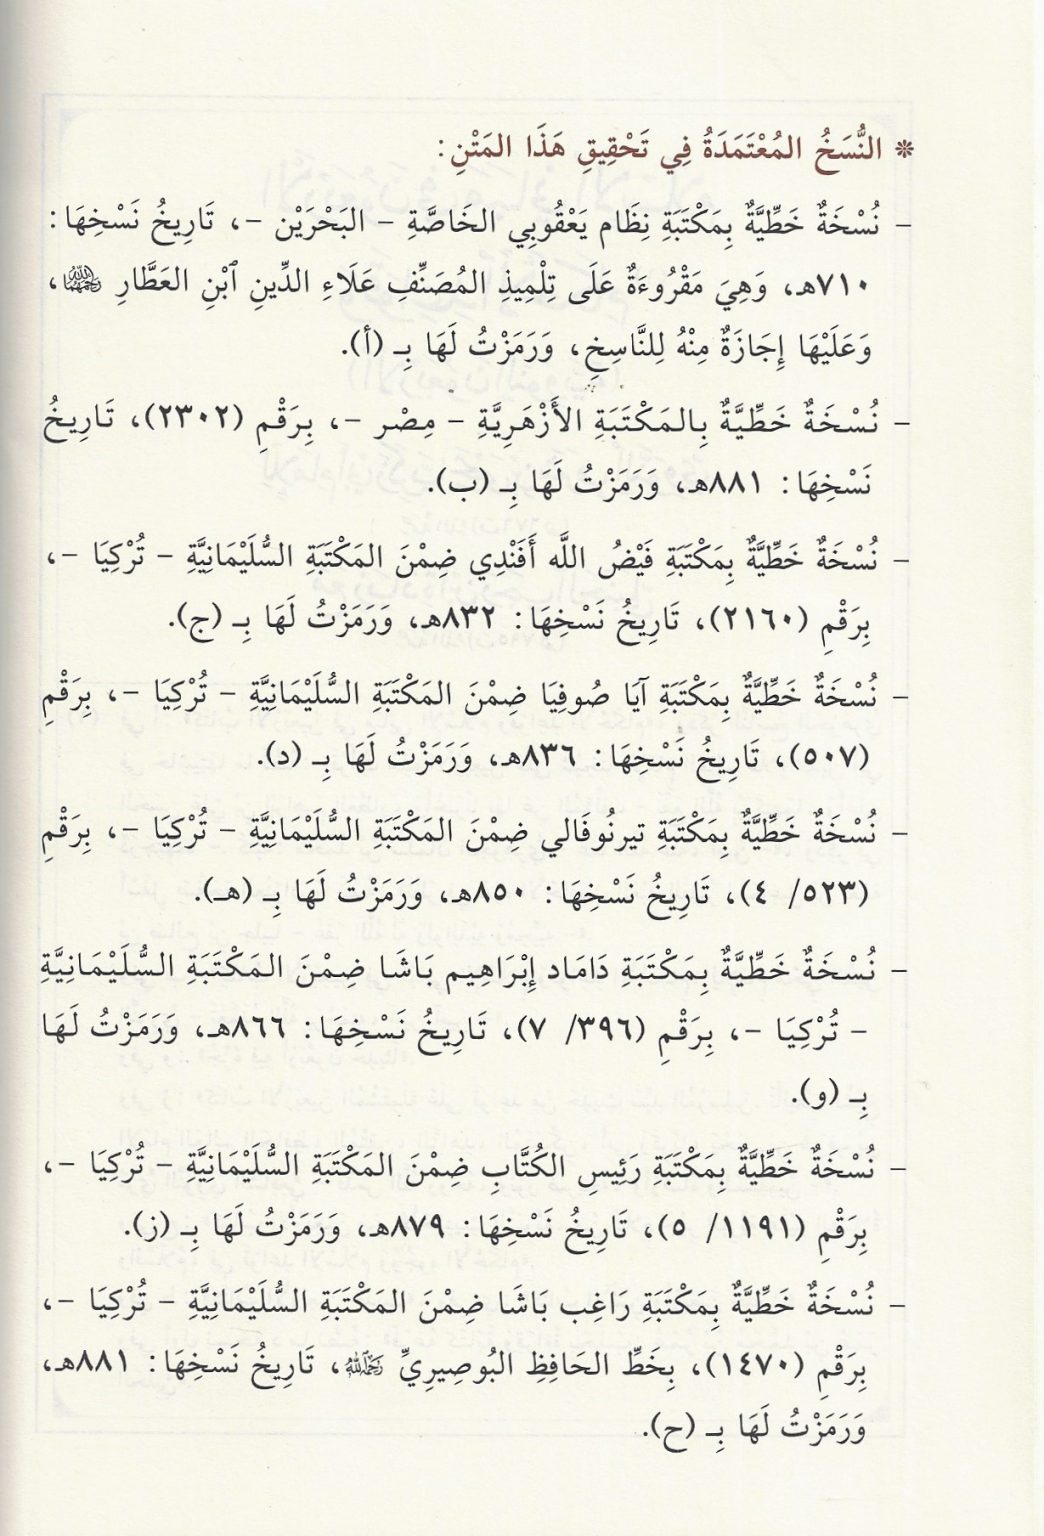 ❋ النُّسَخُ المُعْتَمَدَةُ فِي تَحْقِيقِ هَذَا المَتْنِ:
– نُسْخَةٌ خَطِّيَّةٌ بِمَكْتَبَةِ نِظَام يَعْقُوبِي الخَاصَّةِ – البَحْرَيْن –، تَارِيخُ نَسْخِهَا:
٧١٠هـ، وَهِيَ مَقْرُوءَةٌ عَلَى تِلْمِيذِ المُصَنِّفِ عَلَاءِ الدِّينِ ٱبْنِ العَطَّارِ ،
وَعَلَيْهَا إِجَازَةٌ مِنْهُ لِلنَّاسِخِ، وَرَمَزْتُ لَهَا بِـ (أ).
– نُسْخَةٌ خَطِّيَّةٌ بِالمَكْتَبَةِ الأَزْهَرِيَّةِ – مِصْر –، بِرَقْمِ (٢٣٠٢)، تَارِيخُ
نَسْخِهَا: ٨٨١هـ، وَرَمَزْتُ لَهَا بِـ (ب).
– نُسْخَةٌ خَطِّيَّةٌ بِمَكْتَبَةِ فَيْضُ اللَّه أَفَنْدِي ضِمْنَ المَكْتَبَةِ السُّلَيْمَانِيَّةِ – تُرْكِيَا –،
بِرَقْمِ (٢١٦٠)، تَارِيخُ نَسْخِهَا: ٨٣٢هـ، وَرَمَزْتُ لَهَا بِـ (ج).
– نُسْخَةٌ خَطِّيَّةٌ بِمَكْتَبَةِ آيَا صُوفِيَا ضِمْنَ المَكْتَبَةِ السُّلَيْمَانِيَّةِ – تُرْكِيَا –، بِرَقْمِ
(٥٠٧)، تَارِيخُ نَسْخِهَا: ٨٣٦هـ، وَرَمَزْتُ لَهَا بِـ (د).
– نُسْخَةٌ خَطِّيَّةٌ بِمَكْتَبَةِ تيرنُوفَالي ضِمْنَ المَكْتَبَةِ السُّلَيْمَانِيَّةِ – تُرْكِيَا –، بِرَقْمِ
(٥٢٣/ ٤)، تَارِيخُ نَسْخِهَا: ٨٥٠هـ، وَرَمَزْتُ لَهَا بِـ (هـ).
– نُسْخَةٌ خَطِّيَّةٌ بِمَكْتَبَةِ دَامَاد إِبْرَاهِيم بَاشَا ضِمْنَ المَكْتَبَةِ السُّلَيْمَانِيَّةِ
– تُرْكِيَا –، بِرَقْمِ (٣٩٦/ ٧)، تَارِيخُ نَسْخِهَا: ٨٦٦هـ، وَرَمَزْتُ لَهَا
بِـ (و).
– نُسْخَةٌ خَطِّيَّةٌ بِمَكْتَبَةِ رَئِيسِ الكُتَّابِ ضِمْنَ المَكْتَبَةِ السُّلَيْمَانِيَّةِ – تُرْكِيَا –،
بِرَقْمِ (١١٩١/ ٥)، تَارِيخُ نَسْخِهَا: ٨٧٩هـ، وَرَمَزْتُ لَهَا بِـ (ز).
– نُسْخَةٌ خَطِّيَّةٌ بِمَكْتَبَةِ رَاغِب بَاشَا ضِمْنَ المَكْتَبَةِ السُّلَيْمَانِيَّةِ – تُرْكِيَا –،
بِرَقْمِ (١٤٧٠)، بِخَطِّ الحَافِظِ البُوصِيرِيِّ رَحِمَهُ اللَّهُ، تَارِيخُ نَسْخِهَا: ٨٨١هـ،
وَرَمَزْتُ لَهَا بِـ (ح).